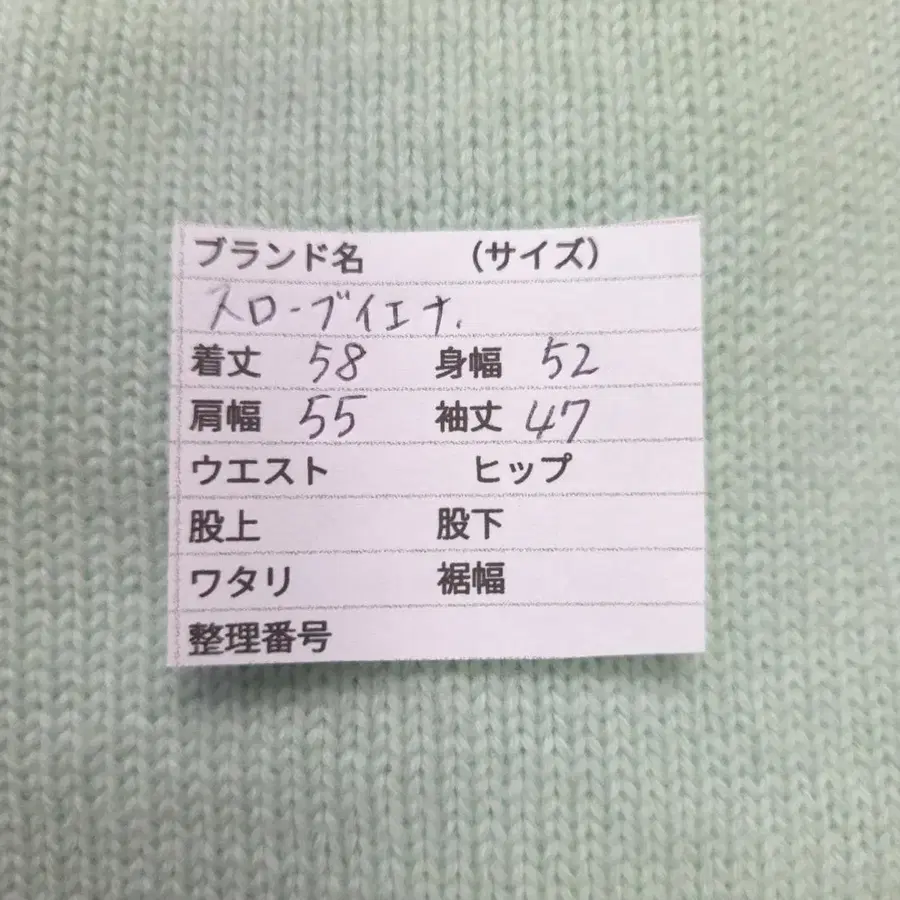 ブランド名 (サイズ)
スローブイエナ.
着丈 58 身幅 52
肩幅 55 袖丈 47
ウエスト ヒップ
股上 股下
ワタリ 裾幅
整理番号